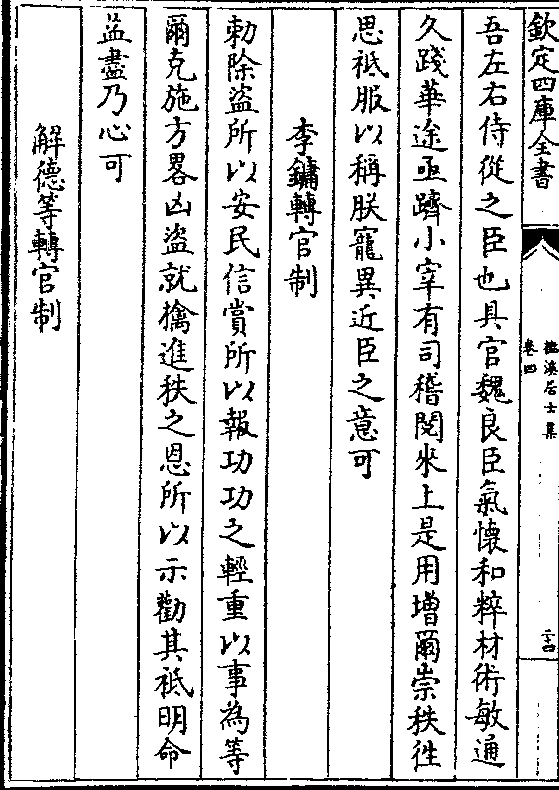 欽定四庫全書
檆溪居士集
卷四
二十四
吾左右侍從之臣也具官魏良臣氣懷和粹材術敏通
久踐華途亟躋小宰有司稽閱來上是用增爾崇秩徃
思祗服以稱朕寵異近臣之意可
李鏞轉官制
勅除盜所以安民信賞所以報功功之輕重以事為等
爾克施方畧凶盜就擒進秩之恩所以示勸其祗明命
益盡乃心可
解德等轉官制